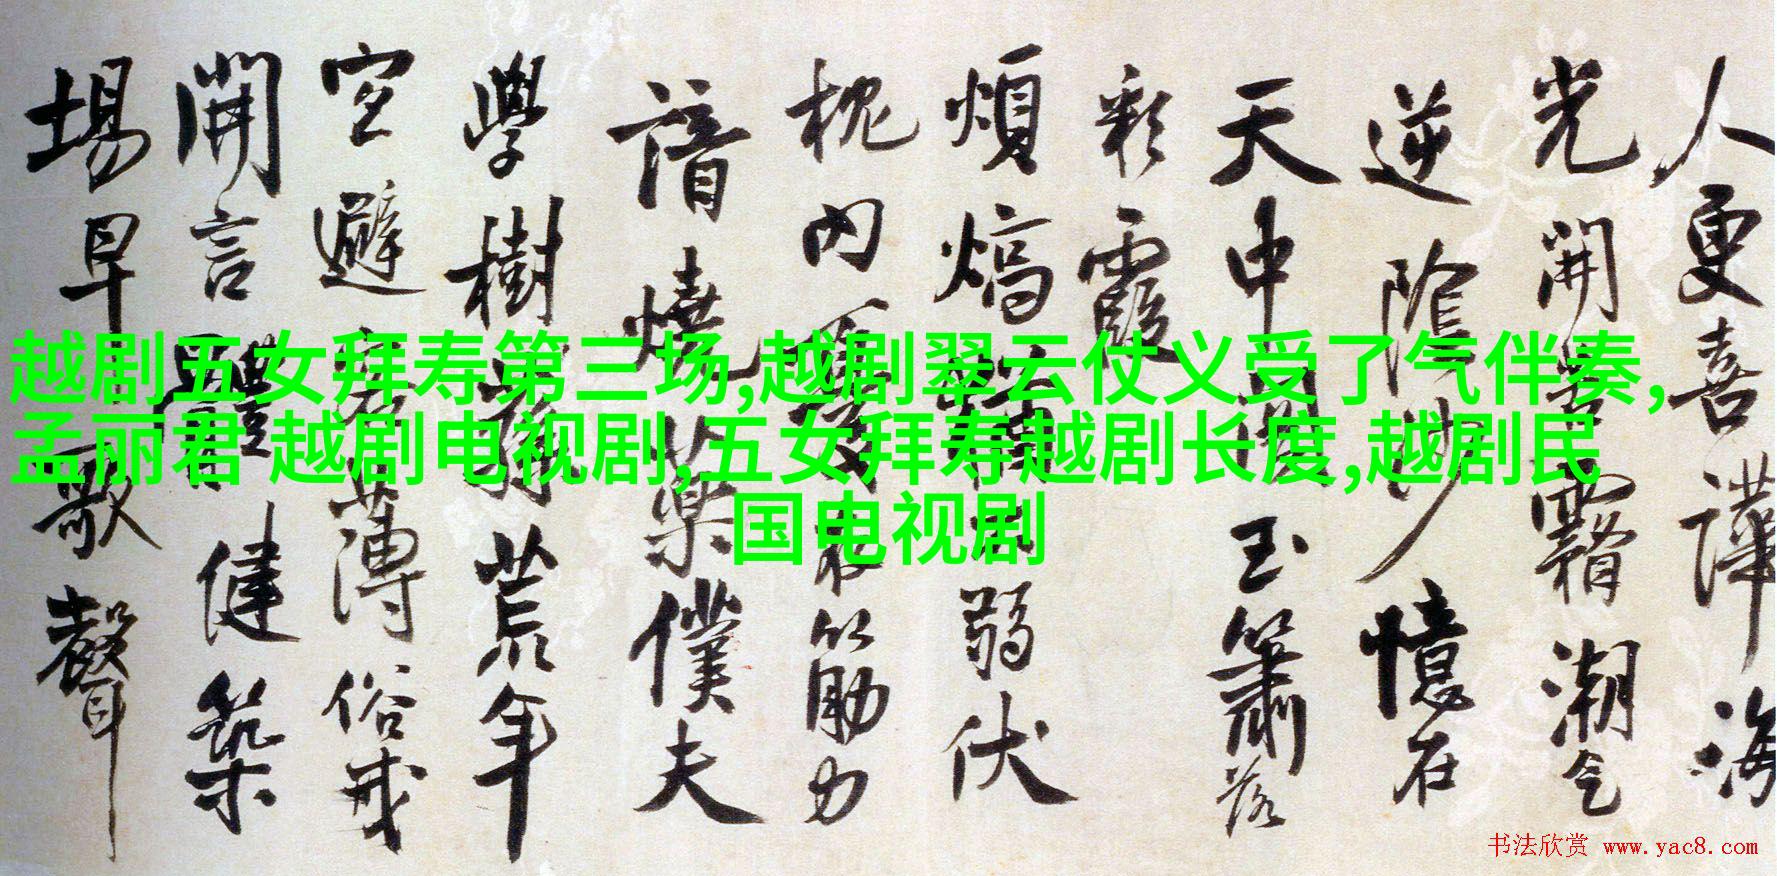 越剧五女拜寿第三场,越剧翠云仗义受了气伴奏,
孟丽君 越剧电视剧,五女拜寿越剧长度,越剧民
国电视剧
人更喜譁海
光開霧潮
逆陰沙憶在
天中玉簫落
彩霞
煩熇弱伏
枕内筋力
諳燒藥僕夫
學樹荒年
避薄俗
開言體健築
場早歌聲
书法欣赏 www.yac8.com